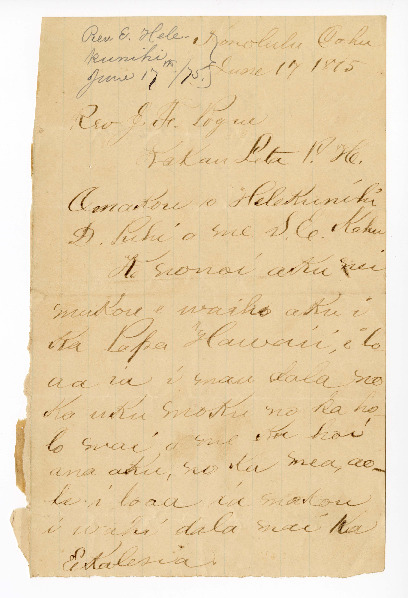 Rev. E. Hele-
kunihi
June 17th/75
Honolulu Oahu
June 17 1875
Rev J. F. Pogue
Kakau Leta P. H.
O makou o Helekunihi
D. Puhi a me S. E. Kahu
Ke nonoi aku nei
makou e waiho aku i
Ka Papa Hawaii, i lo
aa ia i mau dala no
Ka uku moku no ka ho
lo mai, a me ka hoi
ana aku, no ka mea, ao-
le i loaa ia makou
i wahi dala mai ka
Ekalesia.